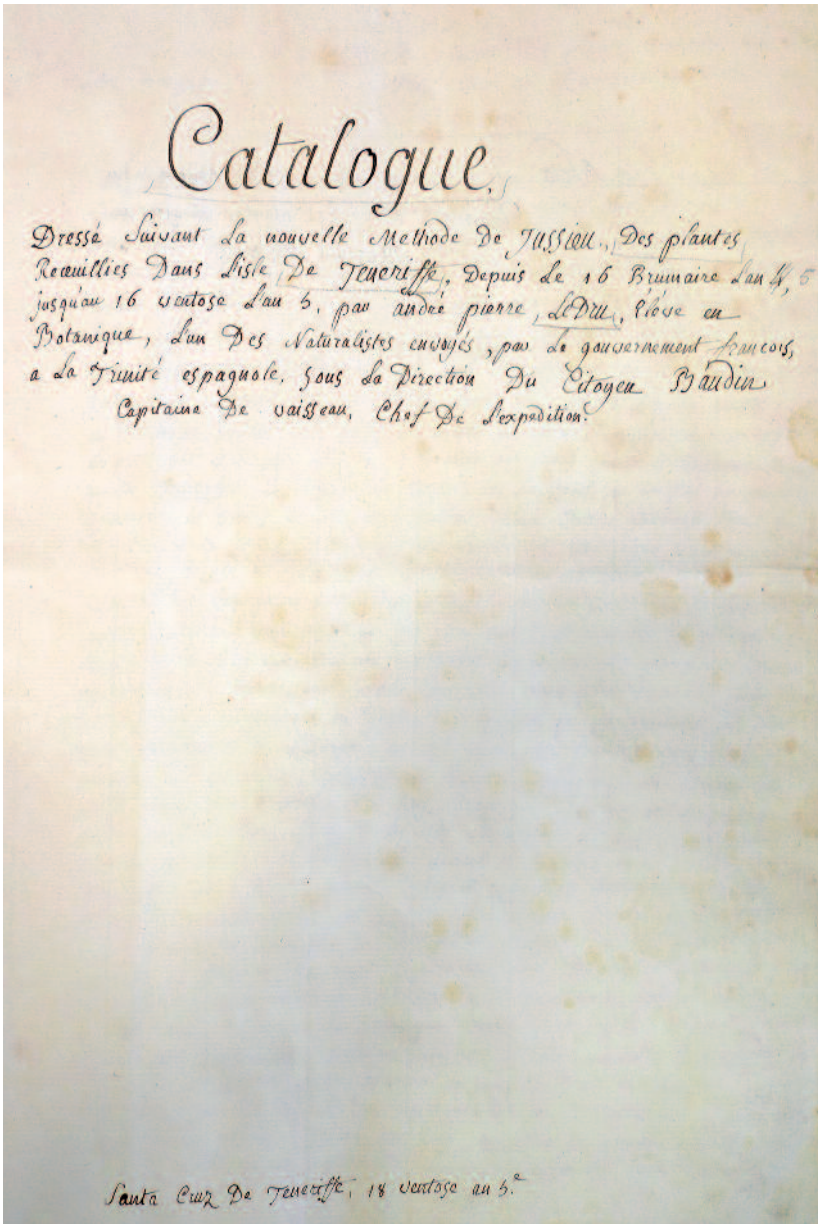 Catalogue.
Dressé Suivant La nouvelle Methode De Jussieu, Des plantes
Recœuillies Dans L'isle De Teneriffe, Depuis Le 16 Brumaire L'an 5
jusqu'au 16 ventose L'an 5, par andré pierre, LeDru, Elève en
Botanique, L'un Des Naturalistes envoyés, par Le gouvernement francois,
a La Trinité espagnole, Sous La Direction Du Citoyen Baudin
Capitaine De vaisseau, Chef De L'expedition.
Santa Cruz De Teneriffe, 18 ventose an 5.e